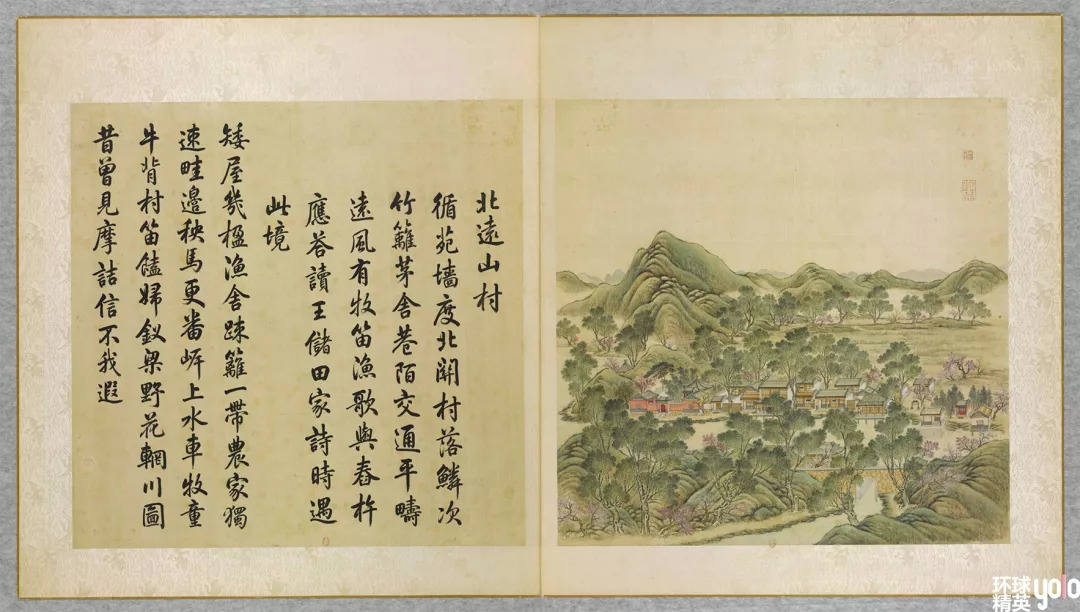 北遠山村
循苑墻度北關村落鱗次
竹籬茅舍巷陌交通平疇
遠風有牧笛漁歌與舂杵
應荅讀王儲田家詩時遇
此境
矮屋幾楹漁舍踈籬一帶農家獨
速畦邊秧馬更番岸上水車牧童
牛背村笛饁婦釵梁野花輞川圖
昔曾見摩詰信不我遐
环球
精英
yolo